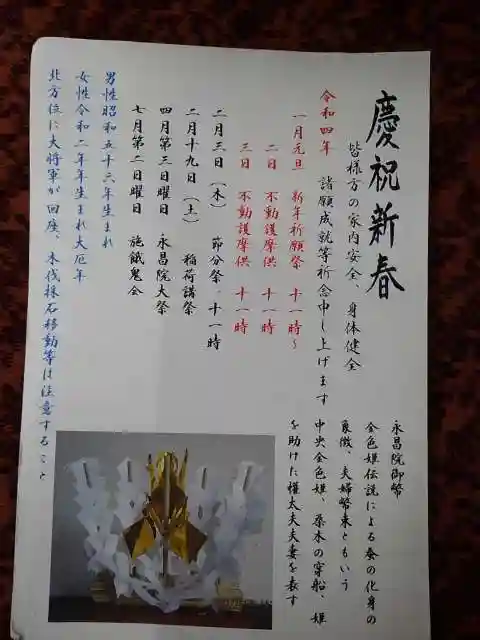 慶祝新春
皆様方の家内安全、身体健全
諸願成就等祈念申し上げます
令和四年
一月元旦 新年祈願祭 十一時~
二日 不動護摩供 十一時
三日 不動護摩供 十一時
二月三日(木) 節分祭、十一時
二月十九日(土) 稲荷講祭
四月第三日曜日 永昌院大祭
七月第二日曜日 施餓鬼会
男性昭和五十六年生まれ
女性令和二年年生まれ大厄年
北方位に大将軍が回座、木伐採石移動等は注意すること
永昌院御幣
金色姫伝説による蚕の化身の
象徴、夫婦幣束ともいう
中央金色姫、桑木の穿船、姫
を助けた権太夫夫妻を表す